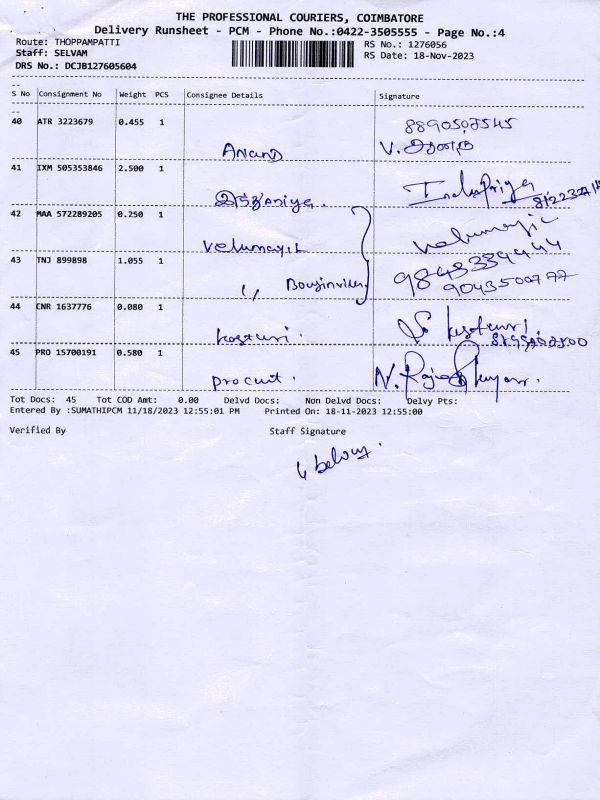 THE PROFESSIONAL COURIERS, COIMBATORE
Delivery Runsheet - PCM - Phone No.:0422-3505555 - Page No.:4
Route: THOPPAMPATTI
RS No.: 1276056
Staff: SELVAM
RS Date: 18-Nov-2023
DRS No.: DCJB127605604
S No Consignment No Weight PCS Consignee Details Signature
40 ATR 3223679 0.455 1 8890507545
Anand V. ஆனந்த்
41 IXM 505353846 2.500 1 Indupriya
இந்துபிரியா.
42 MAA 572289205 0.250 1
Velumayil
43 TNJ 899898 1.055 1 9843339444
9043500777
44 CNR 1637776 0.080 1
kasturi.
45 PRO 15700191 0.580 1
procuit.
Tot Docs: 45 Tot COD Amt: 0.00 Delvd Docs: Non Delvd Docs: Delvy Pts:
Entered By :SUMATHIPCM 11/18/2023 12:55:01 PM Printed On: 18-11-2023 12:55:00
Verified By Staff Signature